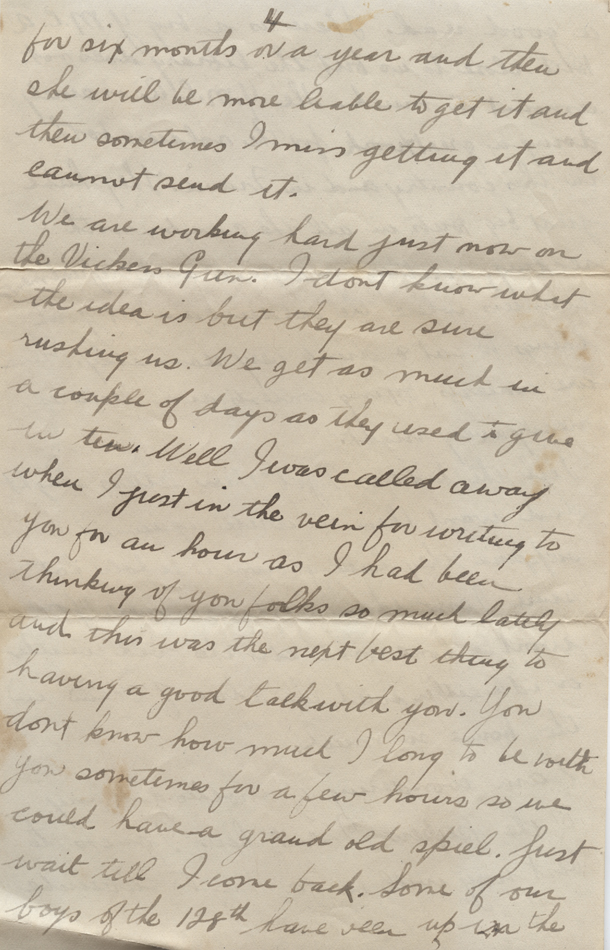 4
for six months or a year and then
she will be more liable to get it and
then sometimes I miss getting it and
cannot send it.
We are working hard just now on
the Vickers Gun. I dont know what
the idea is but they are sure
rushing us. We get as much in
a couple of days as they used to give
in ten. Well I was called away
when I just in the vein for writing to
you for an hour as I had been
thinking of you folks so much lately
and this was the next best thing to
having a good talk with you. You
dont know how much I long to be with
you sometimes for a few hours so we
could have a grand old spiel. Just
wait till I come back. Some of our
boys of the 128th have been up in the